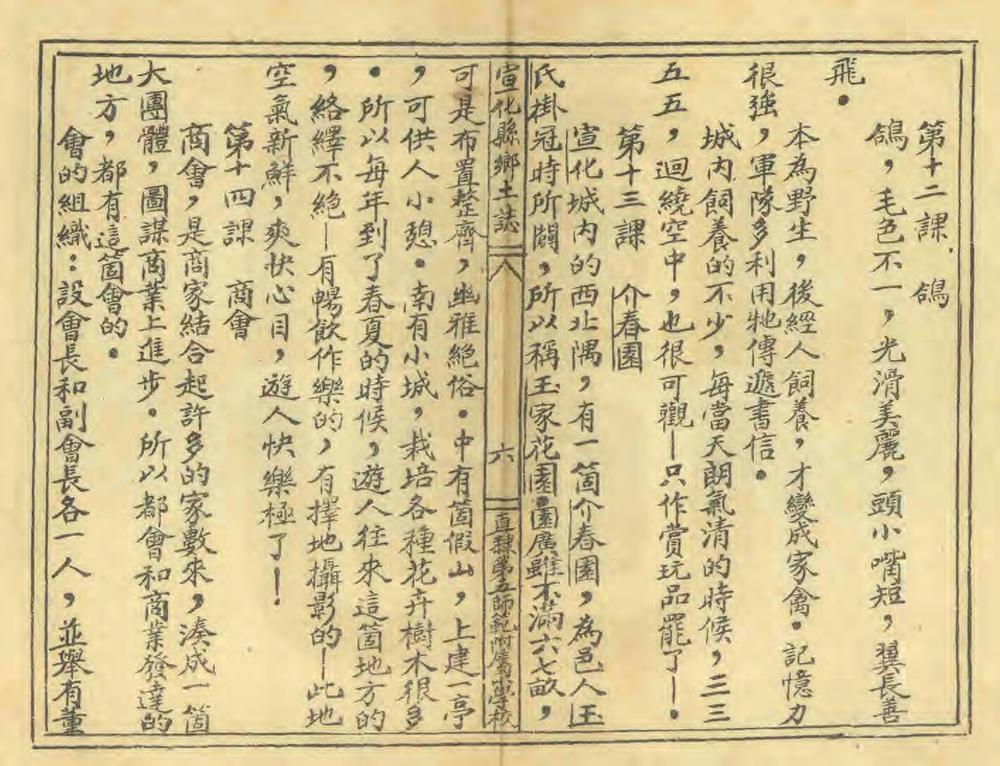 第十二課　鴿
鴿，毛色不一，光滑美麗，頭小嘴短，翼長善
飛．
本為野生，後經人飼養，才變成家禽．記憶力
很強，軍隊多利用牠傳遞書信．
城內飼養的不少，每當天朗氣清的時候，三三
五五，迴繞空中，也很可觀—只作賞玩品罷了—．
第十三課　介春園
宣化城內的西北隅，有一箇介春園，為邑人王
氏掛冠時所闢，所以稱王家花園．園廣雖不滿六七畝，
宣化縣鄉土誌　六　直隸第五師範附屬小學校
可是布置整齊，幽雅絕俗．中有箇假山，上建一亭
，可供人小憩．南有小城，栽培各種花卉樹木很多
．所以每年到了春夏的時候，遊人往來這箇地方的
，絡繹不絕—有暢飲作樂的，有擇地攝影的—此地
空氣新鮮，爽快心目，遊人快樂極了！
第十四課　商會
商會，是商家結合起許多的家數來，湊成一箇
大團體，圖謀商業上進步．所以都會和商業發達的
地方，都有這箇會的．
會的組織：設會長和副會長各一人，並舉有董